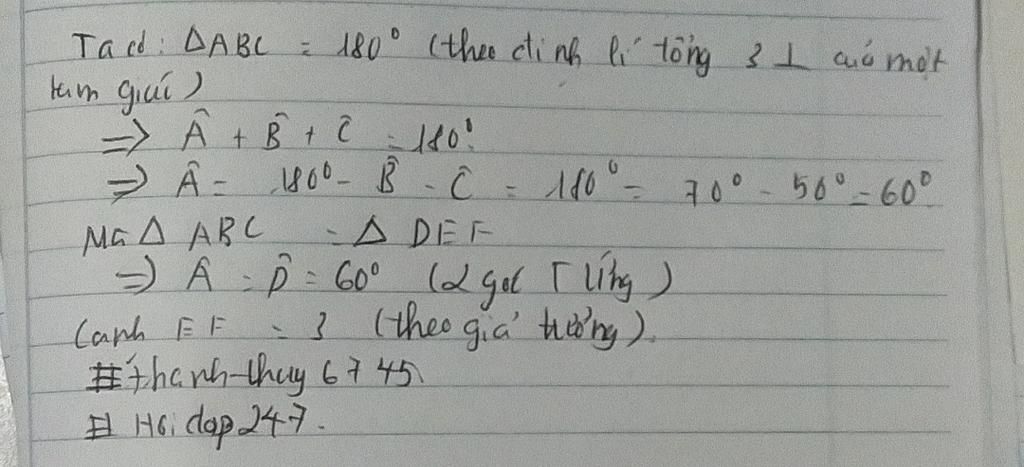 Ta có: ΔABC = 180° (theo định lí tổng 3 ⊥ của một
tam giác)
=> Â + B̂ + Ĉ = 180°
=> Â = 180° - B̂ - Ĉ = 180° = 70° - 50° = 60°
Mà Δ ABC = Δ DEF
=> Â = D̂ = 60° (2 góc T ứng)
Cạnh EF = 3 (theo giả tưởng).
#thanh-thuy 6745
# Hỏi dap 247.